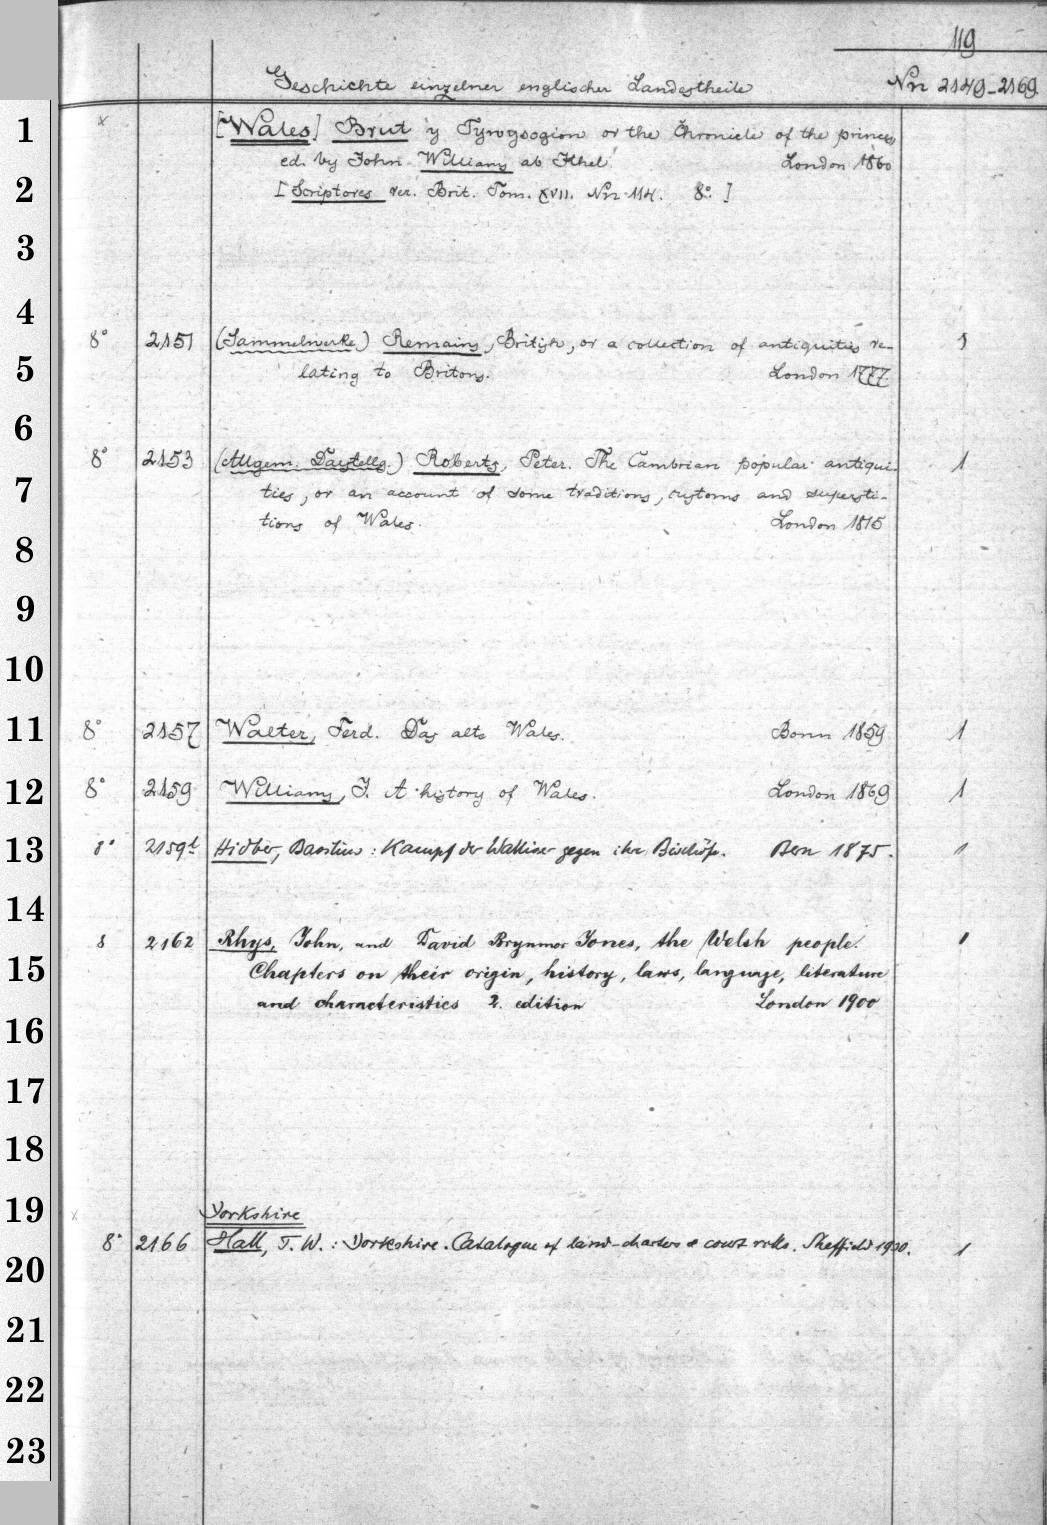 119
Geschichte einzelner englischer Landestheile Nrr 2149-2169.
1 x [Wales] Brut y Tywysogion or the Chronicle of the princes,
ed. by John Williams ab Ithel. London 1860
2 [Scriptores rer. Brit. Tom. XVII. Nrr 114. 8°. ]
3
4
8° 2151 (Sammelwerke) Remains, British, or a collection of antiquities re- 1
5 lating to Britons. London 1777.
6
8° 2153 (Allgem. Darstellg.) Roberts, Peter. The Cambrian popular antiqui- 1
7 ties, or an account of some traditions, customs and supersti-
tions of Wales. London 1815
8
9
10
11 8° 2157 Walter, Ferd. Das alte Wales. Bonn 1859 1
12 8° 2159 Williams, J. A history of Wales. London 1869 1
13 8° 2159 Hidber, : Kampf der Walliser gegen ihre Bischöfe. Bern 1875. 1
14
8 2162 Rhys, John, and David Brynmor Jones, the Welsh people. 1
15 Chapters on their origin, history, laws, language, literature
and characteristics 2. edition London 1900
16
17
18
19 x Yorkshire
8° 2166 Hall, T. W. : Yorkshire. Catalogue of land-charters & court rolls. Sheffield 1930. 1
20
21
22
23